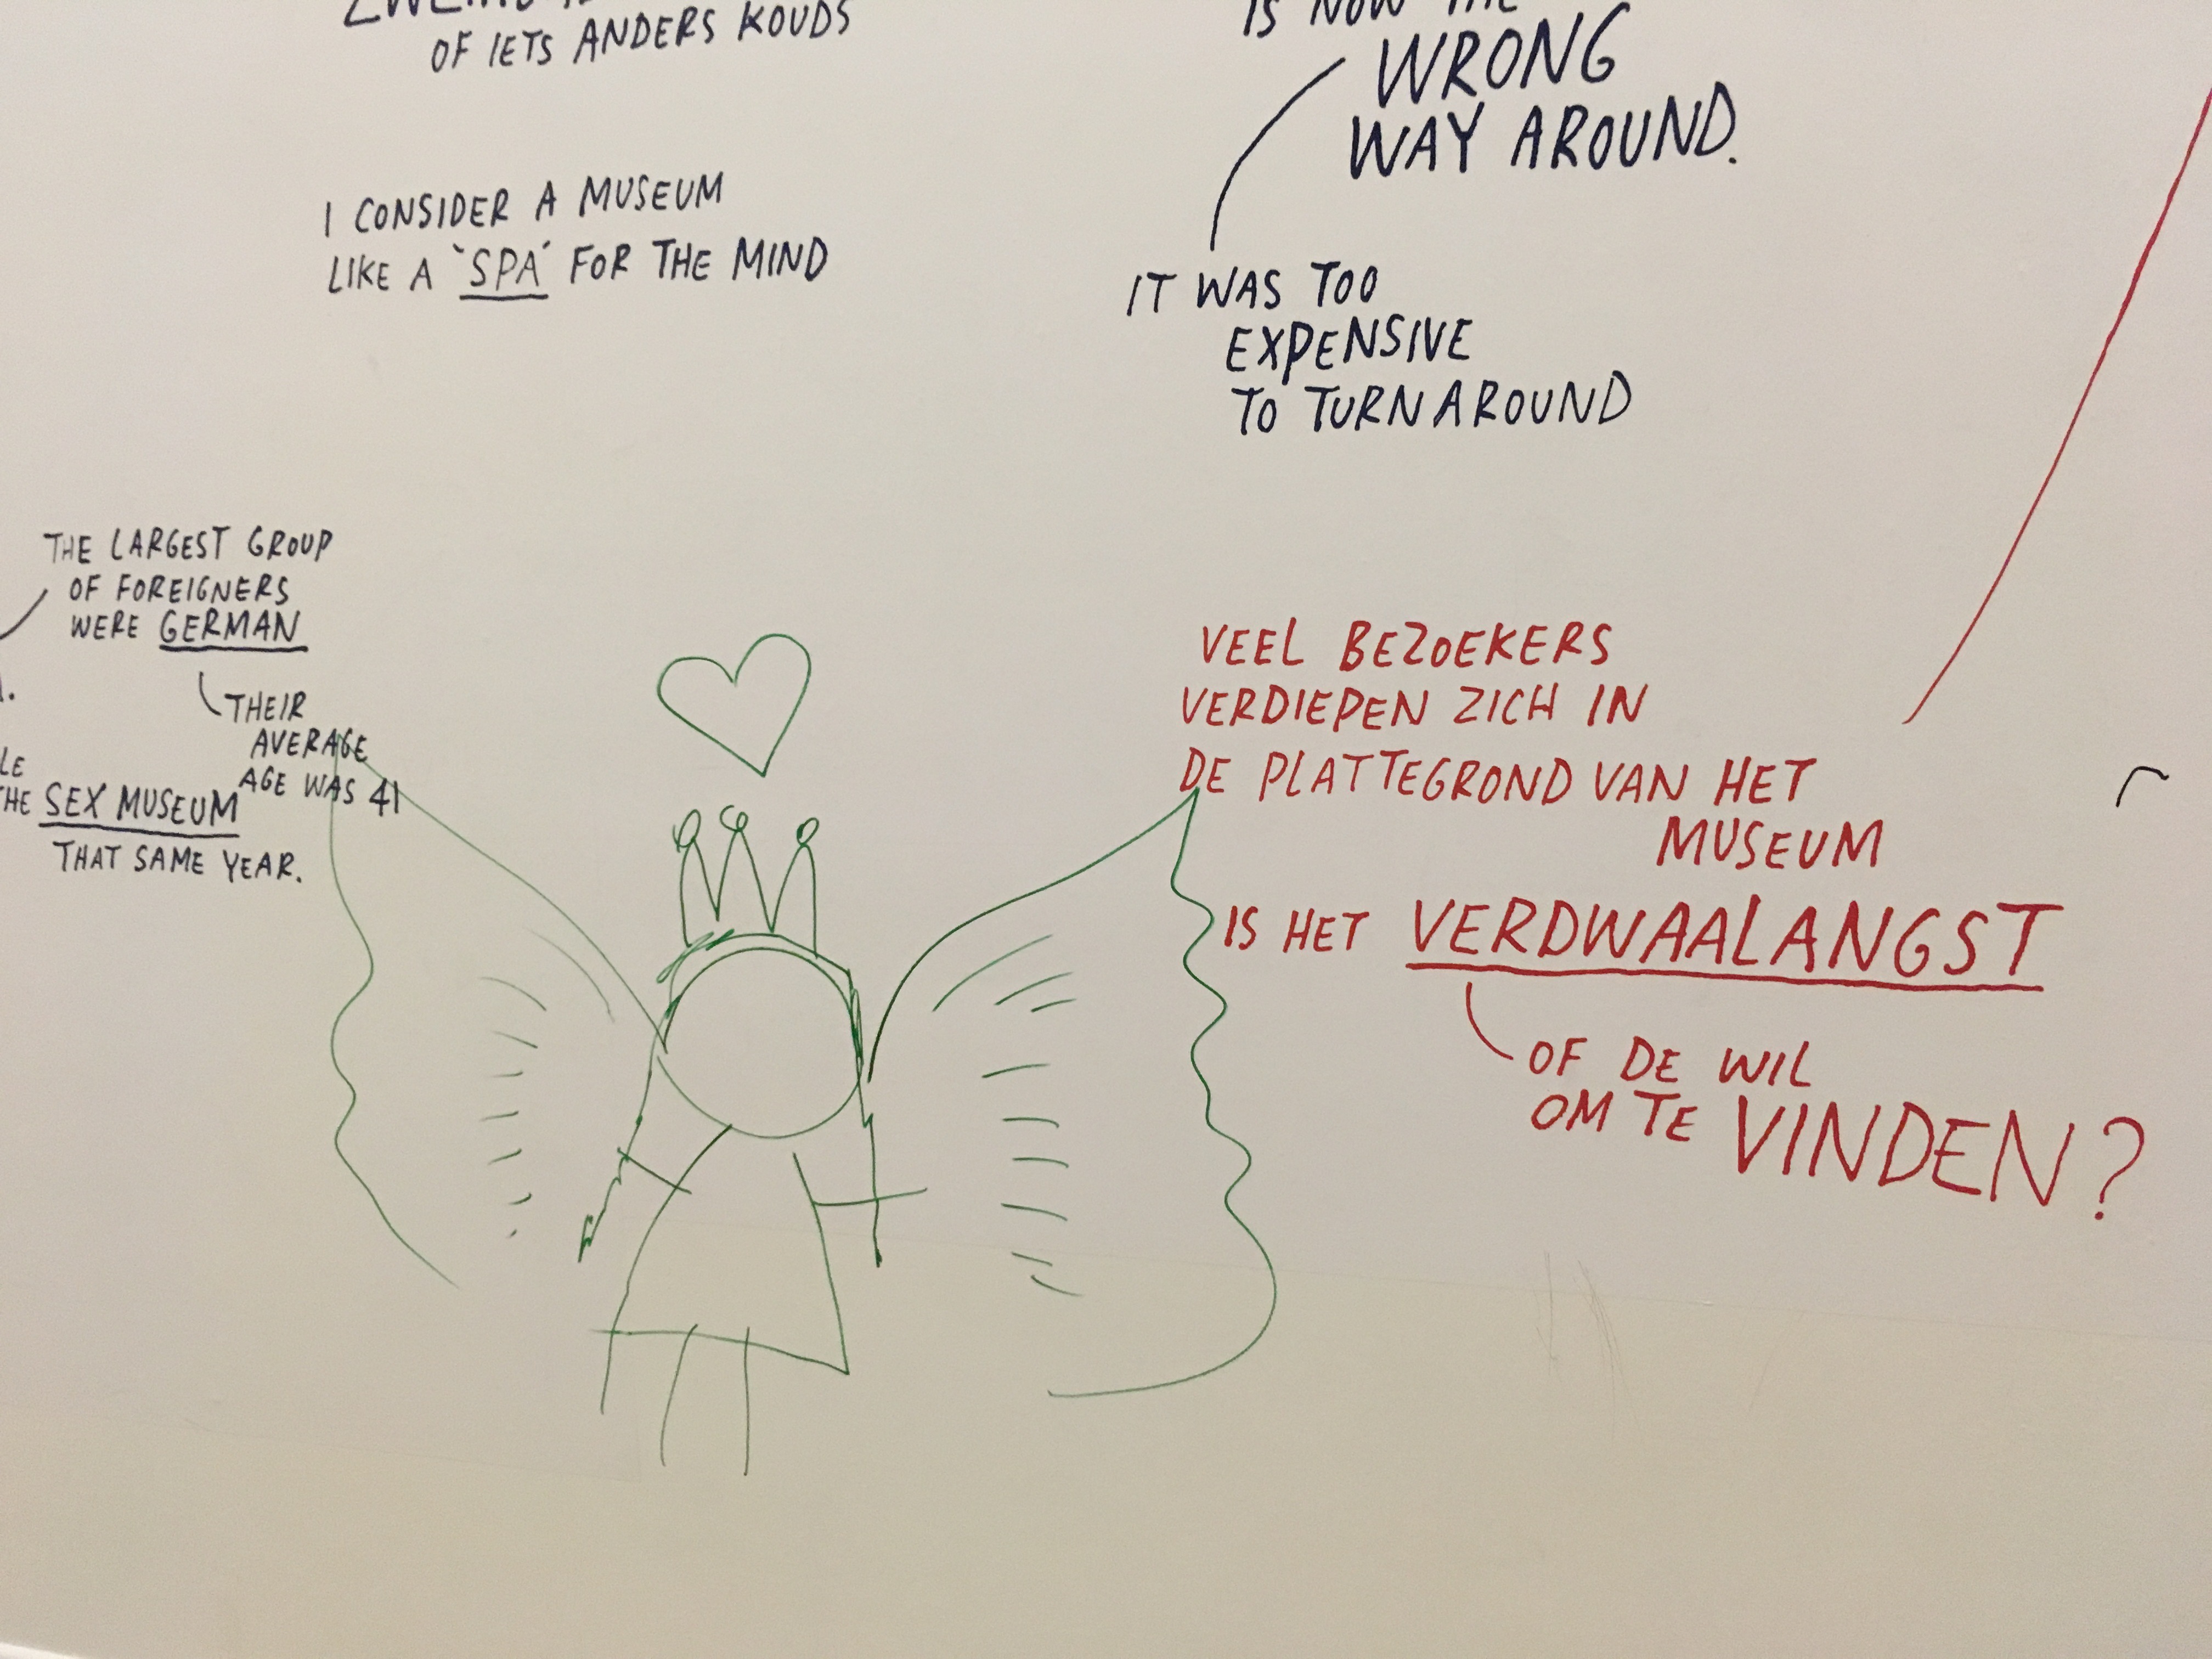 OF IETS ANDERS KOUDS
I CONSIDER A MUSEUM
LIKE A 'SPA' FOR THE MIND
IS NOW THE
WRONG
WAY AROUND.
IT WAS TOO
EXPENSIVE
TO TURN AROUND
THE LARGEST GROUP
OF FOREIGNERS
WERE GERMAN
THEIR
AVERAGE
AGE WAS 41
THE SEX MUSEUM
THAT SAME YEAR.
VEEL BEZOEKERS
VERDIEPEN ZICH IN
DE PLATTEGROND VAN HET
MUSEUM
IS HET VERDWAALANGST
OF DE WIL
OM TE VINDEN?